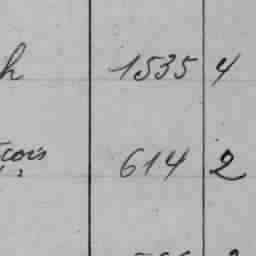 h 1535 4
çois 614 2